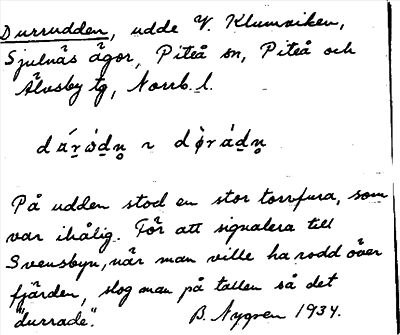 Durrudden, udde V. Klumviken,
Sjulnäs ägor, Piteå sn, Piteå och
Älvsby tg, Norrb. l.
På udden stod en stor torrfura, som
var ihålig. För att signalera till
Svensbyn, när man ville ha rodd över
fjärden, slog man på tallen så det
"durrade".
B. Nygren 1934.